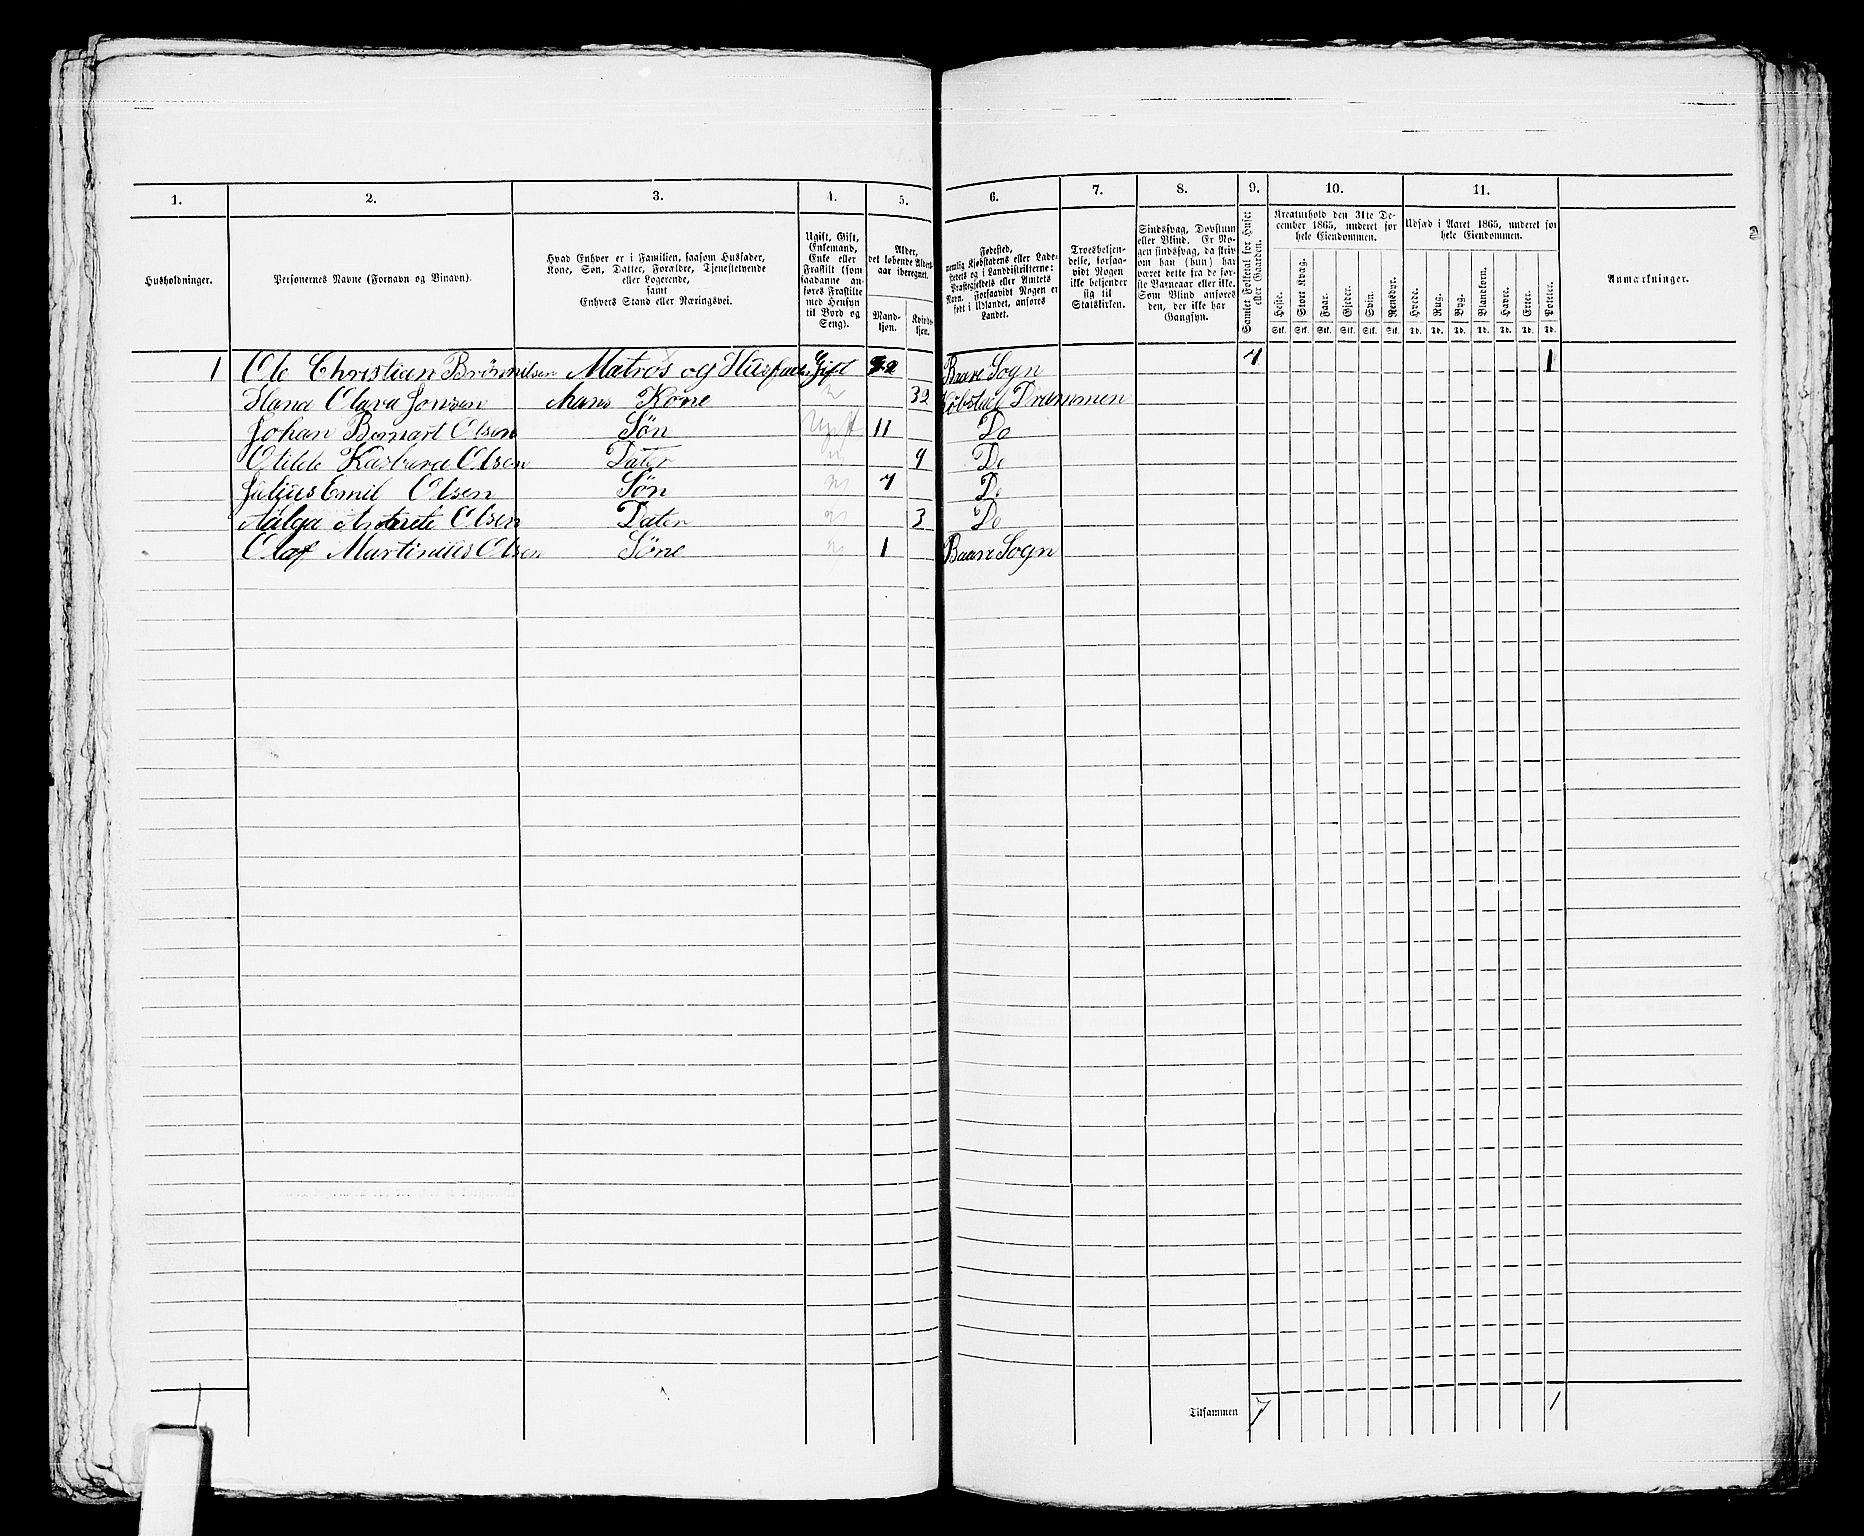 1. 2. 3. 4. 5. 6. 7. 8. 9. 10. 11.
Husholdninger.
Personernes Navne (Fornavn og Binavn).
Hvad Enhver er i Familien, saasom Husfader,
Kone, Søn, Datter, Forældre, Tjenestetyende
eller Logerende,
samt
Enhvers Stand eller Næringsvei.
Ugift, Gift,
Enkemand,
Enke eller
Fraskilt (som
saadanne an-
føres Fraskilte
med Hensyn
til Bord og
Seng).
Alder,
det løbende Alders-
aar iberegnet.
Mand-
kjøn.
Kvind-
kjøn.
Fødested,
nemlig Kjøbstadens eller Lade-
stedets og i Landdistrikterne:
Præstegjeldets eller Amtets
Navn. Forsaavidt Nogen er
født i Udlandet, anføres
Landet.
Troesbekjen-
delse, forsaa-
vidt Nogen
ikke bekjender
sig til
Statskirken.
Sindssvag, Døvstum
eller Blind. Er No-
gen sindssvag, da skriv
om han (hun) har
været dette fra de før-
ste Barneaar eller ikke.
Som Blind anføres
den, der ikke har
Gangsyn.
Samlet Folketal for Huset
eller Gaarden.
Kreaturhold den 31te De-
cember 1865, underet for
hele Eiendommen.
Heste. Stort Kvæg. Faar. Gjeder. Svin. Rensdyr.
Stk. Stk. Stk. Stk. Stk. Stk.
Udsæd i Aaret 1865, underet for
hele Eiendommen.
Hvede. Rug. Byg. Blandkorn. Havre. Erter. Poteter.
Td. Td. Td. Td. Td. Td. Td.
Anmærkninger.
1 Ole Christian Brønnilsen Matros og Husfader Gift Baare Sogn 7 1
Hana Clara Jonsen Mans Kone 32 Købstad Drammen
Johan Bernart Olsen Søn Ugift 11 Do
Otilde Olsen Dater 9 Do
Julius Emil Olsen Søn 7 Do
Olsen Dater 3 Do
Olaf Martinius Olsen Søne 1 Baare Sogn
Tilsammen 7 1